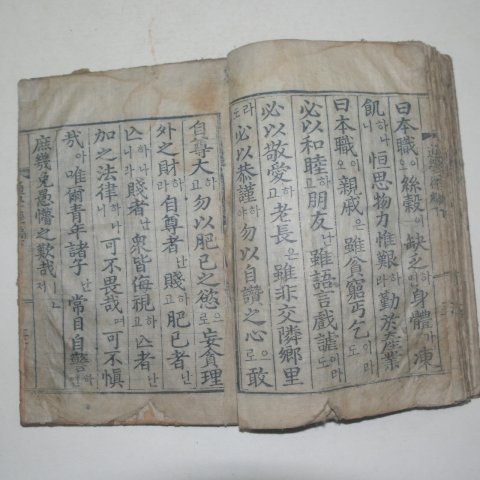 日本職이오 絲穀이 缺乏하면 身體가 凍
飢하나니 恒思物力惟艱하라 勤於産業
日本職이오 親戚은 雖貧窮丐乞이라도
必以和睦하고 朋友난 雖語言戲謔이라도
必以敬愛하고 老長은 雖非交隣鄉里
라도 必以恭謹하야 勿以自讚之心으로 敢
自尊大하고 勿以肥已之慾으로 妄貪理
外之財하라 自尊者난 賤하고 肥已者난
亾하나니라 賤者난 衆皆侮視하고 亾者난
加之法律하나니 可不畏哉며 可不愼
哉아 唯爾靑年諸子난 常目自警하야
庶幾免愚懵之歎哉ᆫ저